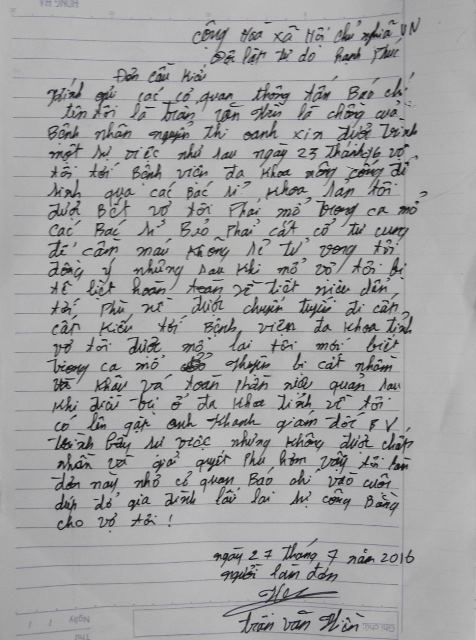 cộng Hoà xã Hội chủ nghĩa VN
Độc lập tự do hạnh Phúc
Đơn cầu Kiếu
Kính gửi các cơ quan thông tấn Báo chí
tên tôi là trần văn Hiền là chồng của
Bệnh nhân nguyễn thị oanh xin được trình
một sự việc như sau ngày 23 tháng 6 vợ
tôi tới Bệnh viện đa khoa nông cống để
sinh qua các Bác sĩ khoa sản tôi
được Biết vợ tôi Phải mổ trong ca mổ
các Bác sĩ Bảo Phải cắt cổ tử cung
để cầm máu không sẽ tử vong tôi
đồng ý nhưng sau khi mổ vợ tôi bị
tê liệt hoàn toàn về tiết niệu dẫn
tới Phù nề được chuyển tuyến đi cấp
cứu tới Bệnh viện đa khoa tỉnh
vợ tôi được mổ lại tôi mới biết
trong ca mổ bị cắt nhầm
và khâu vá toàn phần niệu quản sau
khi điều trị ở đa khoa tỉnh về tôi
có lên gặp anh Khanh giám đốc BV
trình bầy sự việc nhưng không được chấp
nhận và giải quyết Phù hợp vậy tôi làm
đơn này nhờ cơ quan Báo chí vào cuộc
giúp đỡ gia đình lấy lại sự công Bằng
cho vợ tôi !
ngày 27 tháng 7 năm 2016
người làm đơn
trần văn Hiền